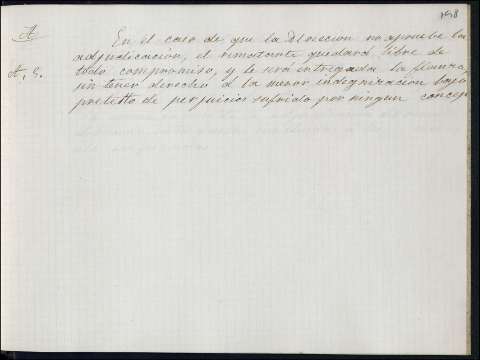 198
A
En el caso de que la Direccion no apruebe la
adjudicación, el rematante quedará libre de
A, S. todo compromiso, y le será entregada la fianza,
sin tener derecho á la menor indegnizacion bajo
pretesto de perjuicios sufrido por ningun concep